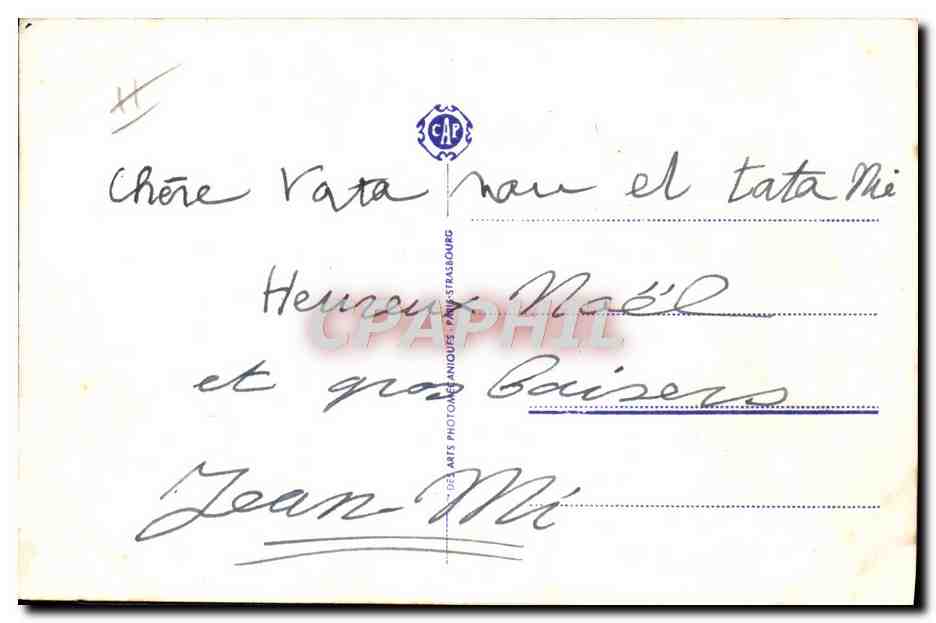 CAP
Chère Tata nou et tata Mi
Heureux Noël
et gros baisers
Jean-Mi
DES ARTS PHOTOMÉCANIQUES - PARIS-STRASBOURG
CPAPHIL